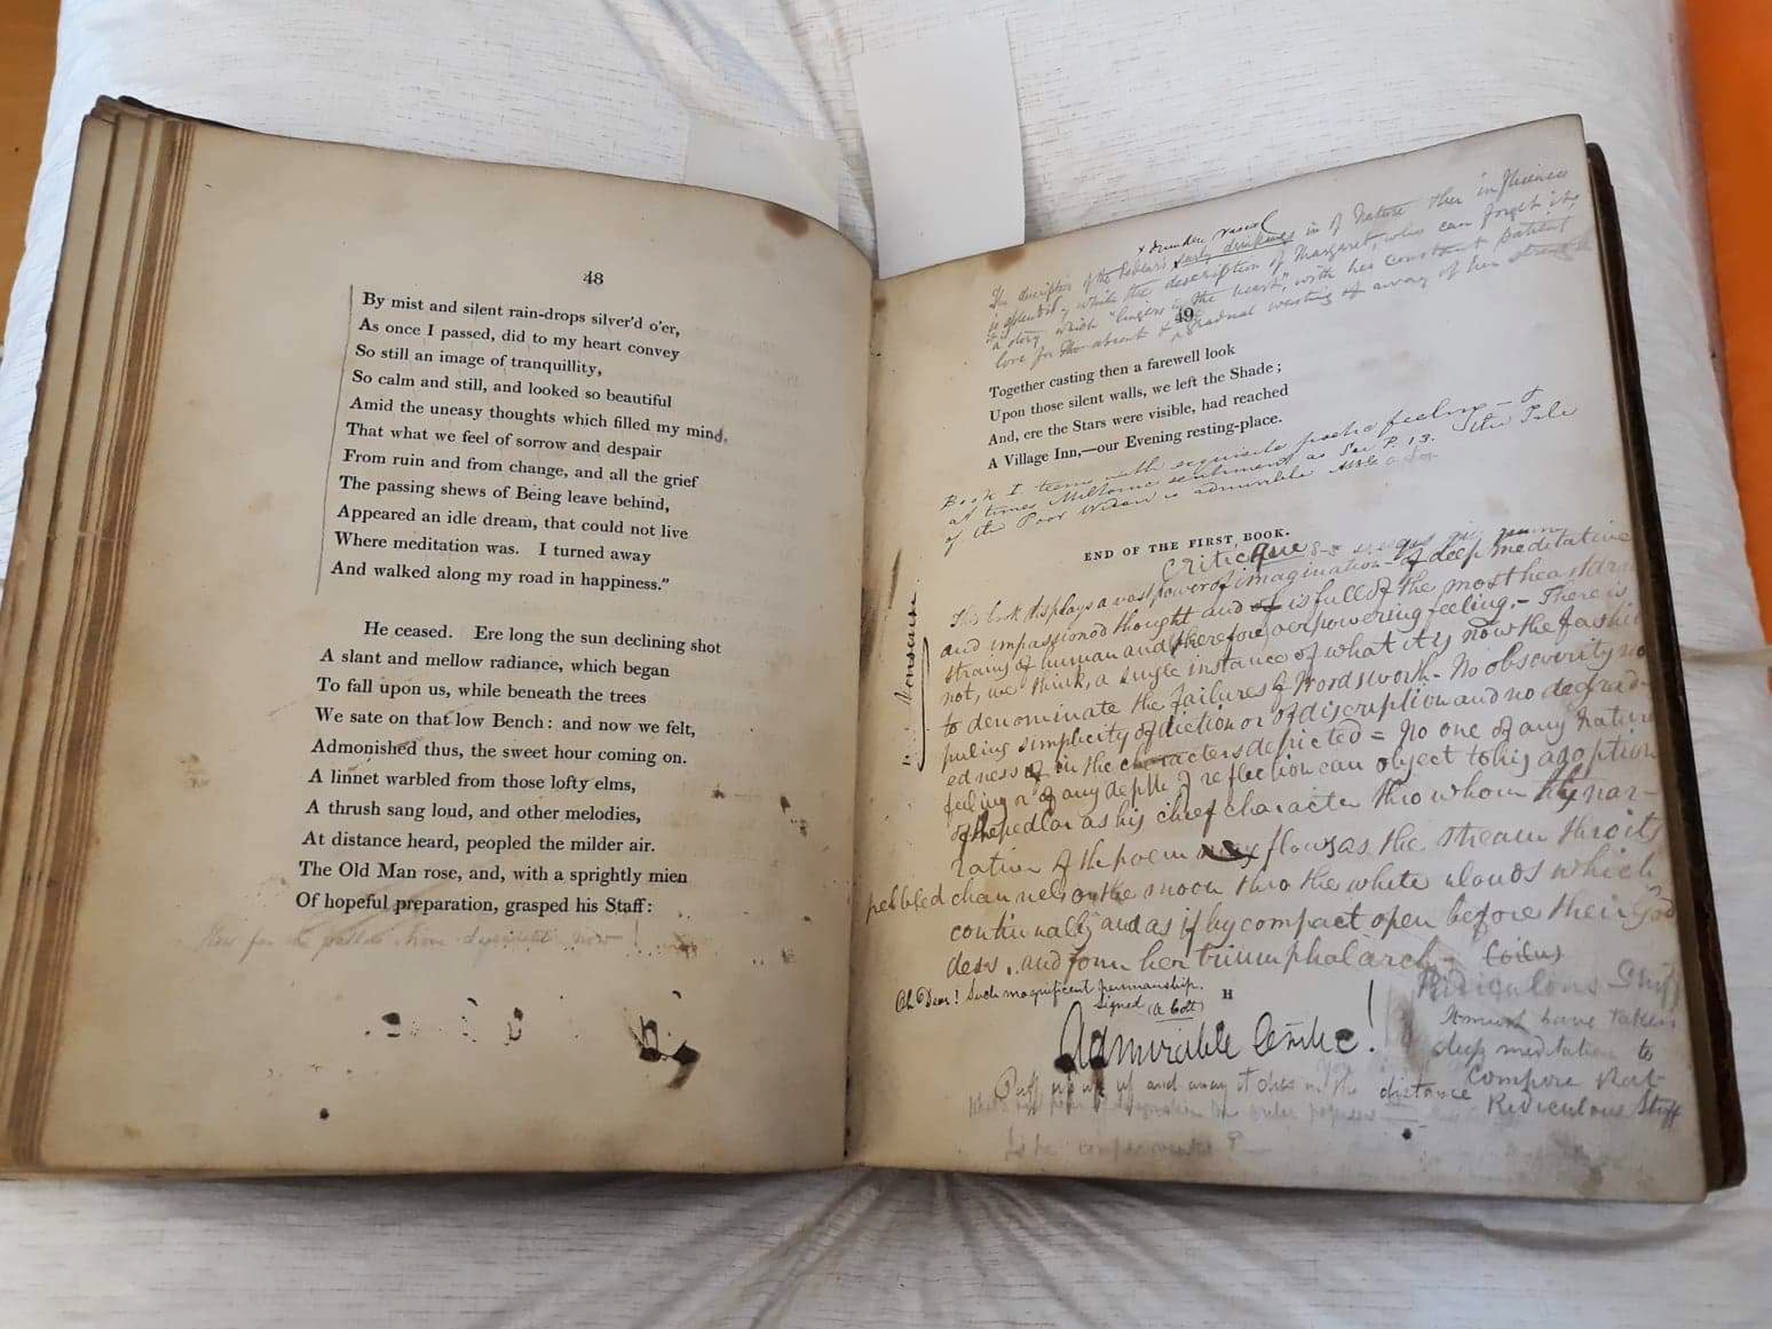 48
By mist and silent rain-drops silver'd o'er,
As once I passed, did to my heart convey
So still an image of tranquillity,
So calm and still, and looked so beautiful
Amid the uneasy thoughts which filled my mind,
That what we feel of sorrow and despair
From ruin and from change, and all the grief
The passing shews of Being leave behind,
Appeared an idle dream, that could not live
Where meditation was. I turned away
And walked along my road in happiness."
He ceased. Ere long the sun declining shot
A slant and mellow radiance, which began
To fall upon us, while beneath the trees
We sate on that low Bench: and now we felt,
Admonished thus, the sweet hour coming on.
A linnet warbled from those lofty elms,
A thrush sang loud, and other melodies,
At distance heard, peopled the milder air.
The Old Man rose, and, with a sprightly mien
Of hopeful preparation, grasped his Staff:
now!
+ drunken rascal
The description of the Pedlar's early drinkings in of Nature & her influences
is splendid, while the description of Margaret, who can forget it,
"a story which "lingers in the heart", with her constant & patient
love for the absent & gradual wasting away of her strength
49
Together casting then a farewell look
Upon those silent walls, we left the Shade;
And, ere the Stars were visible, had reached
A Village Inn,—our Evening resting-place.
Book I. teems with exquisite poetic feeling — &
at times Miltonic sentiment as See P. 13. The Tale
of the Poor Widow is admirable
END OF THE FIRST BOOK.
Criticque
This book displays a vast power of imagination - of deep meditative
and impassioned thought and of is full of the most heartstirring
strains of human and therefore overpowering feeling. - There is
not, we think, a single instance of what it is now the fashion
to denominate the failures of Wordsworth - No obscurity no
puling simplicity of diction or of discription and no degrad-
edness of in the characters depicted = No one of any nature
feeling or of any depth of reflection can object to his adoption
of the pedlar as his chief character thro whom the nar-
ration of the poem flows as the stream thro its
pebbled channels or the moon thro the white clouds which
continually and as if by compact open before their God
dess, and form her triumphal arch -
nonsense
Oh Dear! Such magnificent penmanship.
Signed (A Colt)
H
Admirable Critic!
Ridiculous Stuff
It must have taken
deep meditation to
compose that
Ridiculous Stuff
Puff up and away it goes in the distance
Is he ?